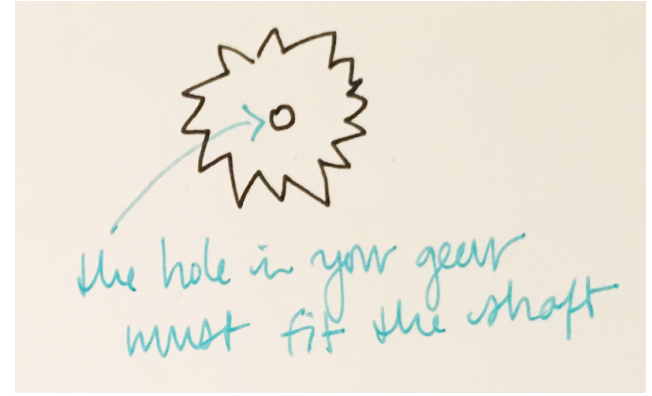 the hole in your gear
must fit the shaft